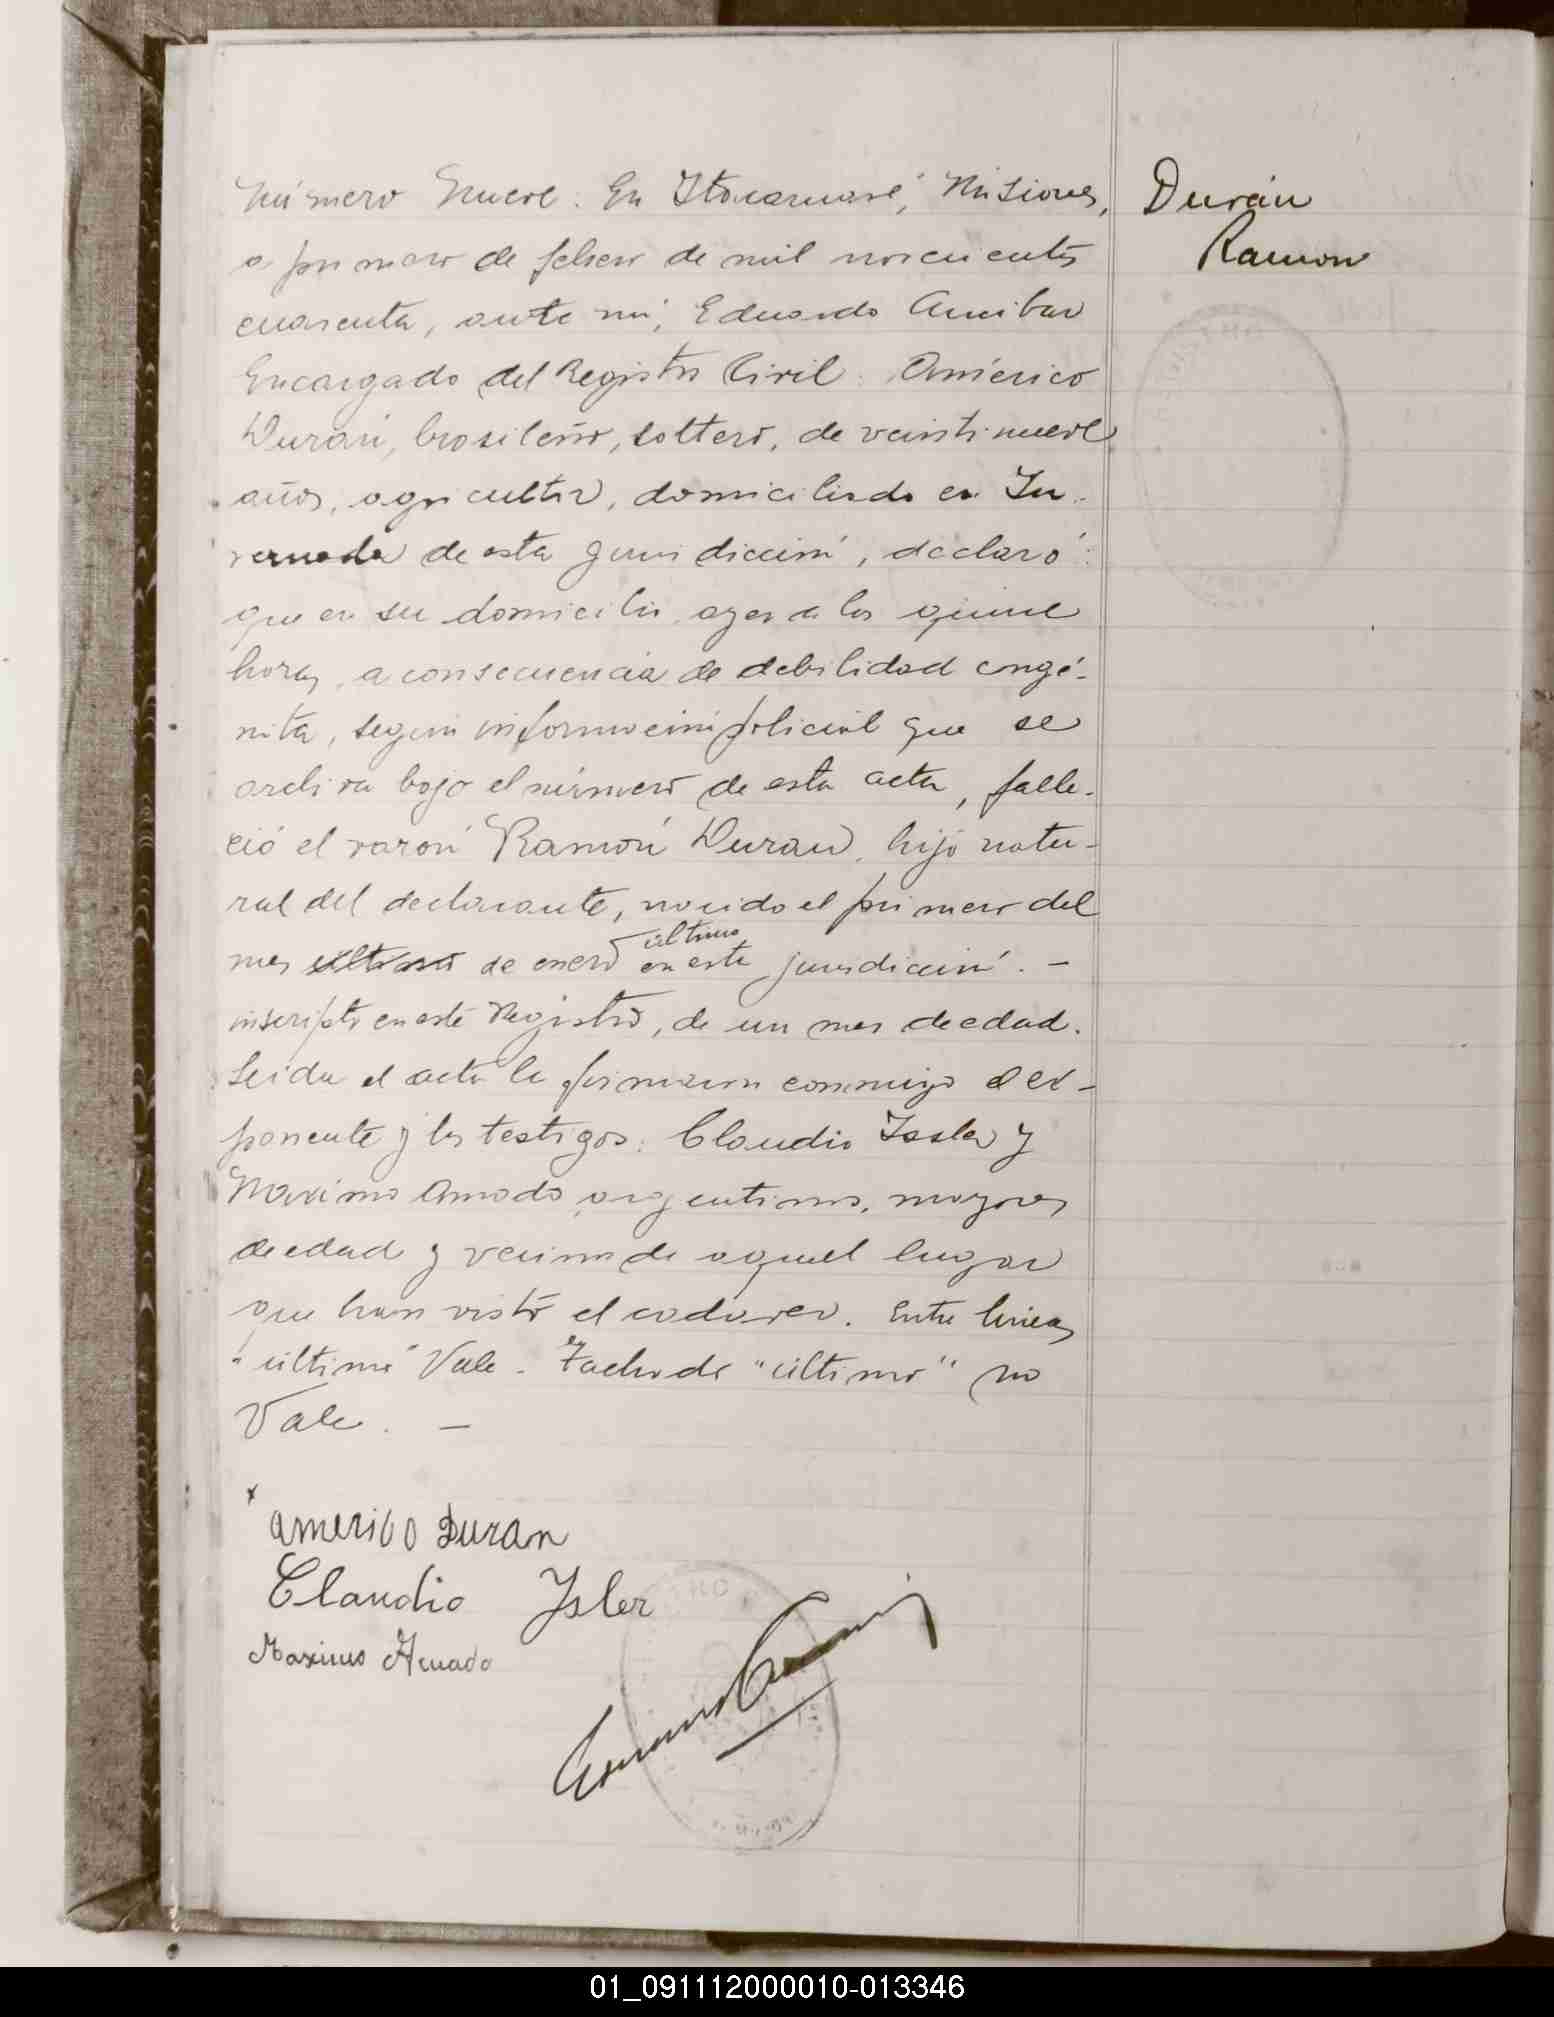 Número Nueve: En Itacaruaré, Misiones,
a primero de febrero de mil novecientos
cuarenta, ante mí, Eduardo Amibar
Encargado del Registro Civil: Américo
Durán, brasileño, soltero, de veintinueve
años, agricultor, domiciliado en In-
vernada de esta jurisdicción, declaró:
que en su domicilio, ayer a las quince
horas, a consecuencia de debilidad congé-
nita, según información policial que se
archiva bajo el número de esta acta, falle-
ció el varón Ramón Duran, hijo natu-
ral del declarante, nacido el primero del
último
mes ultimo de enero en esta jurisdicción. —
inscripto en este Registro, de un mes de edad.
Leida el acta la firmaron conmigo el ex-
ponente y los testigos: Claudio Issler y
Maximo Amado, argentinos, mayores
de edad y vecinos de aquel lugar
que han visto el cadaver. Entre lineas
"último" Vale - Tachado "último" no
Vale. —
Durán
Ramon
x
americo Duran
Claudio Isler
Maximo Amado
01_091112000010-013346